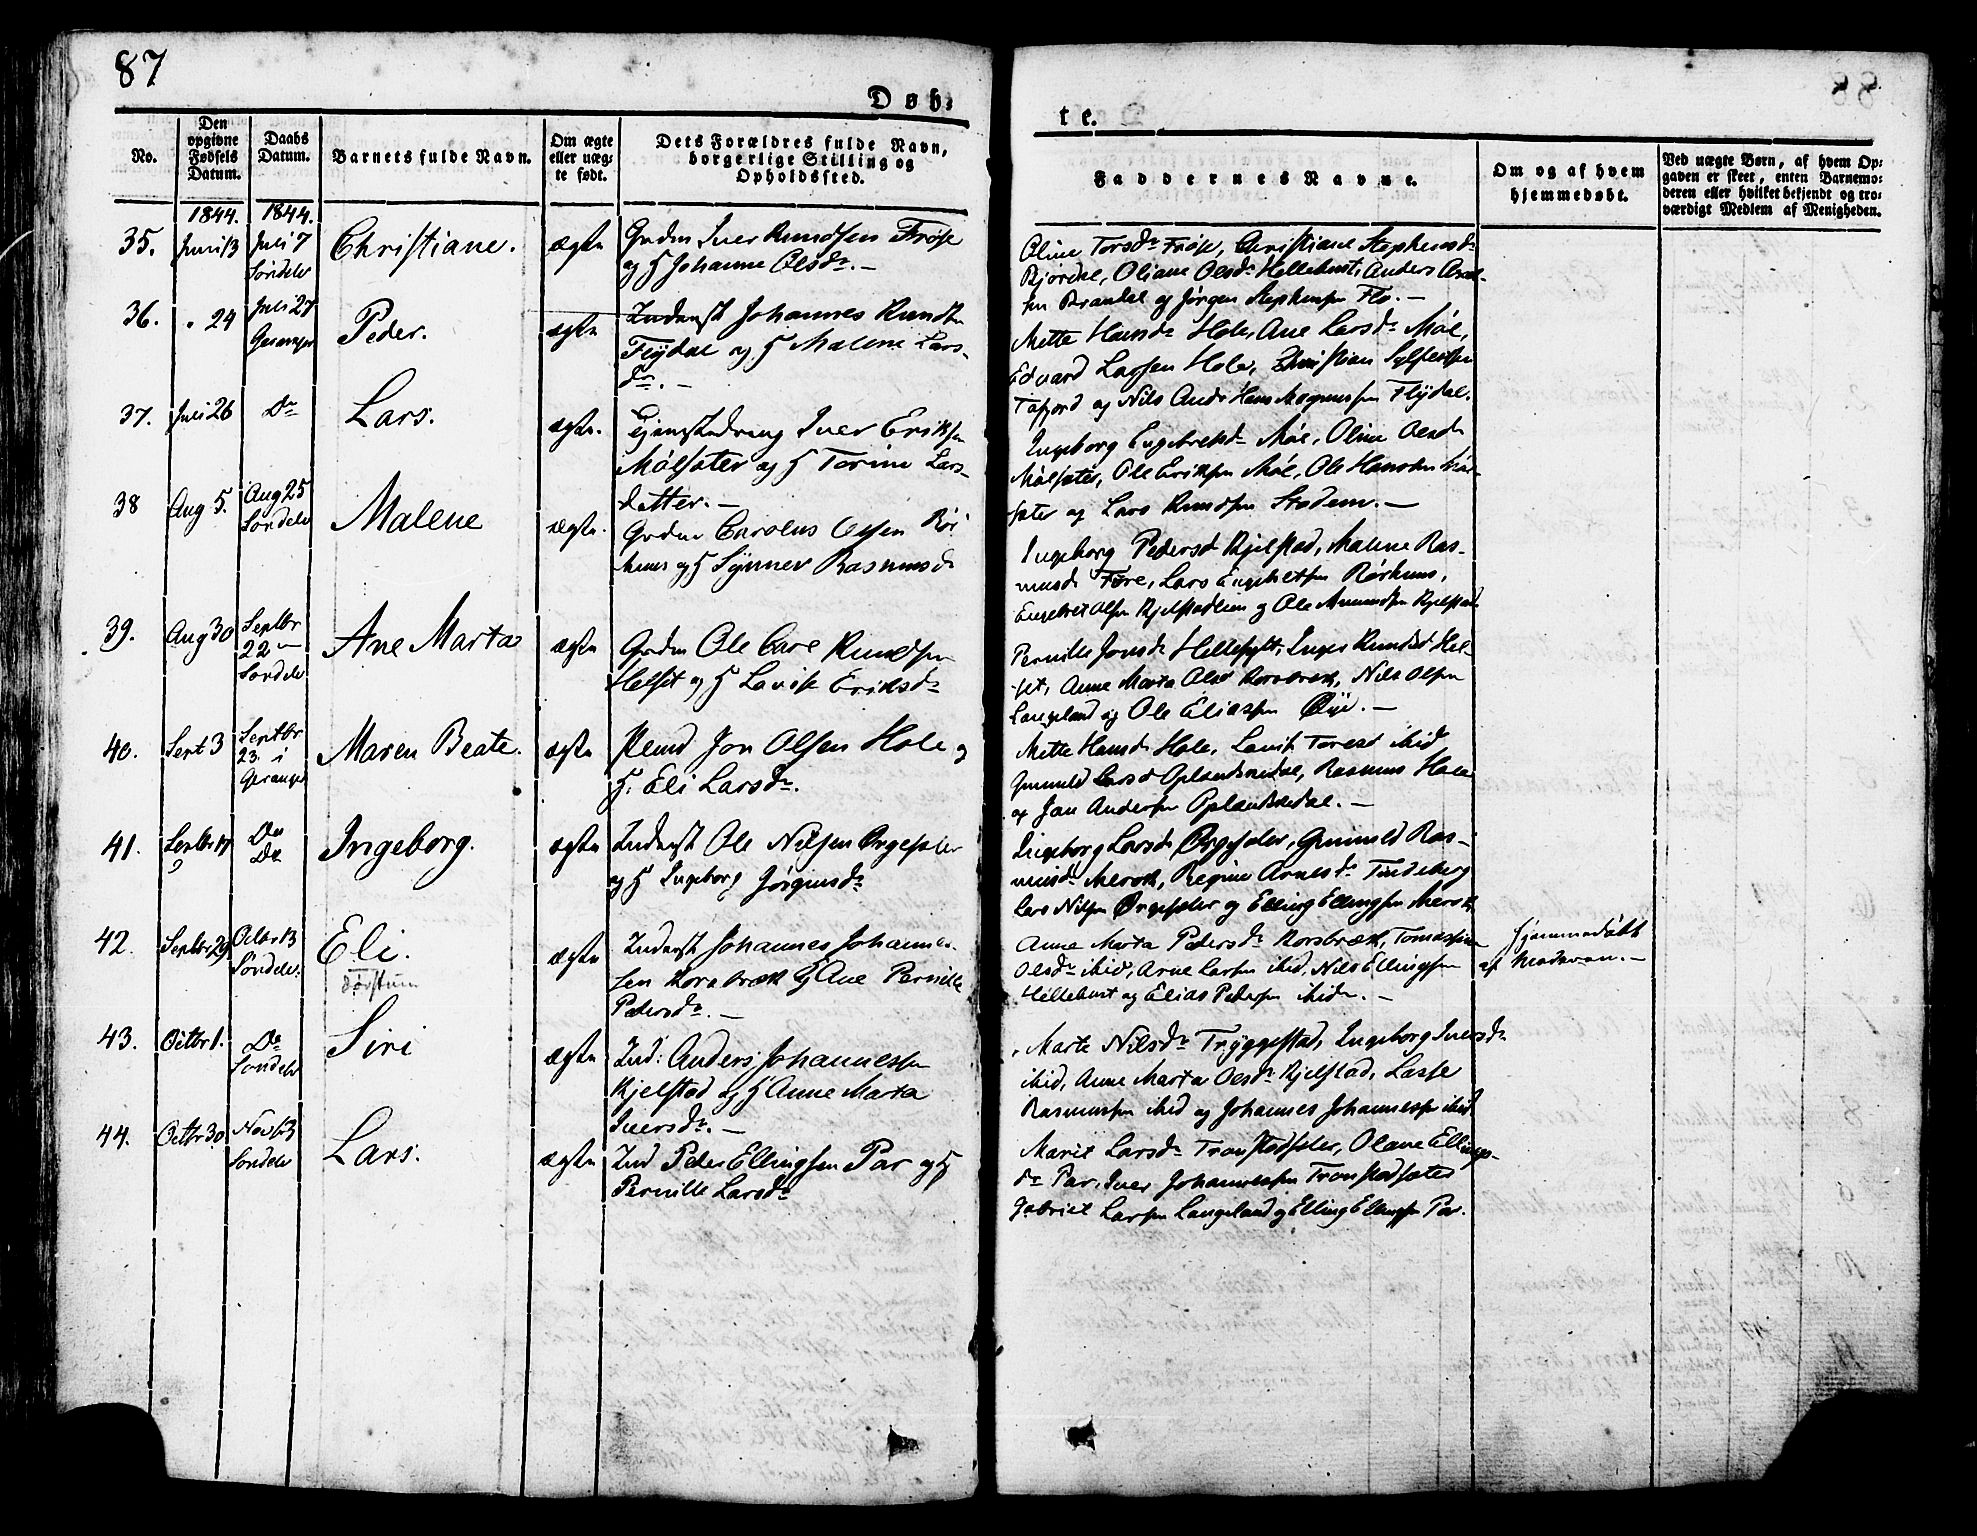 87
Døb-
te.
No.
Den opgivne Fødsels Datum.
Daabs Datum.
Barnets fulde Navn.
Om ægte eller uægte født.
Dets Forældres fulde Navn, borgerlige Stilling og Opholdssted.
Faddernes Navne.
Om og af hvem hjemmedøbt.
Ved uægte Børn, af hvem Opgaven er skeet, enten Barnemoderen eller hvilket bekjendt og troværdigt Medlem af Menigheden.
1844. 1844.
35. Juni 13 Juli 7 Christiane. ægte Grdm Iver Knudsen Frøse
og H Johanne Olsdr. –
Oline Torsdr Frøse, Christiane Stephensdr
Bjordal, Oliane Olsdr Hellebust, Anders
Brandal og Jørgen Stephensen Flo. –
36. " 24 Juli 27 Peder. ægte Inderst Johannes Knudsen
Flydal og H Malene Lars-
dr. –
Mette Hansdr Hole, Ane Larsdr Møl,
Edvard Larsen Hole, Christian
Tafjord og Nils Hans Magnussen Flydal.
37. Juli 26 Do Lars. ægte. Iver Eriksen
Mølsæter og H Torine Lars-
datter. –
Ingeborg Engebretsdr Møl, Oline Olsdr
Mølsæter, Ole Eriksen Møl, Ole Hansen
sæter og Lars Knudsen. –
38 Aug 5. Aug 25 Malene ægte. Grdm Carolus Olsen
og H Synnev Rasmusd
Ingeborg Pedersd Kjelstad, Malene Ras-
musdr, Lars Engebretsen Rørhuus,
Engebret Olsen Kjelstadlien og Ole Kjelstad
39. Aug 30 Septbr 22 Ane Marta ægte Grdm Ole Carl Knudsen
Helset og H Lavise Eriksdr
Pernille Jonsdr Hellesylt, Inger Knudsd Hel-
set, Anne Marta Olsd Korsbræk, Nils Olsen
Langeland og Ole Eliassen Øye. –
40. Sept 3 Septbr 23 i Geranger Maren Beate. ægte Jon Olsen Hole og
H. Eli Larsdr.
Mette Hansdr Hole, ibid
Gunnild Larsd Oplandskedal, Rasmus Hole
og Jon Andersen Oplandskedal. –
41. Do Ingeborg. ægte Inderst Ole Nilsen Ørgesæter
og H Ingeborg Jørgensdr
Ingeborg Larsdr Ørgesæter, Gunnild Ras-
musdr Merok, Regine Arnesdr
Lars Nilsen Ørgesæter og Elling Ellingsen Merok
42. Septbr 29 Octbr 13 Eli. ægte Inderst Johannes Johannes-
sen Korsbræk H Ane Pernille
Petersdr. –
Anne Marta Petersdr Korsbræk,
Olsdr ibid, Arne Larsen ibid, Nils Ellingsen
Hellebust og Elias Petersen ibidm. –
Hjemmedøbt
af
43. Octbr 1. Do Siri ægte Ind: Anders Johannessen
Kjelstad og H Anne Marta
Iversdr. –
Marte Nilsdr Tryggestad, Ingeborg Iversdr
ibid, Anne Marta Olsdr Kjelstad, Lasse
Rasmussen ibid og Johannes Johannessen ibid
44. Octbr 30 Nov 3 Lars. ægte Ind Peder Ellingsen Par og H
Pernille Larsdr
Marit Larsdr Tronstadsæter, Olave Ellings-
dr Par, Iver Johannessen Tronstadsæter
Gabriel Larsen Langeland og Elling Ellingsen Par.